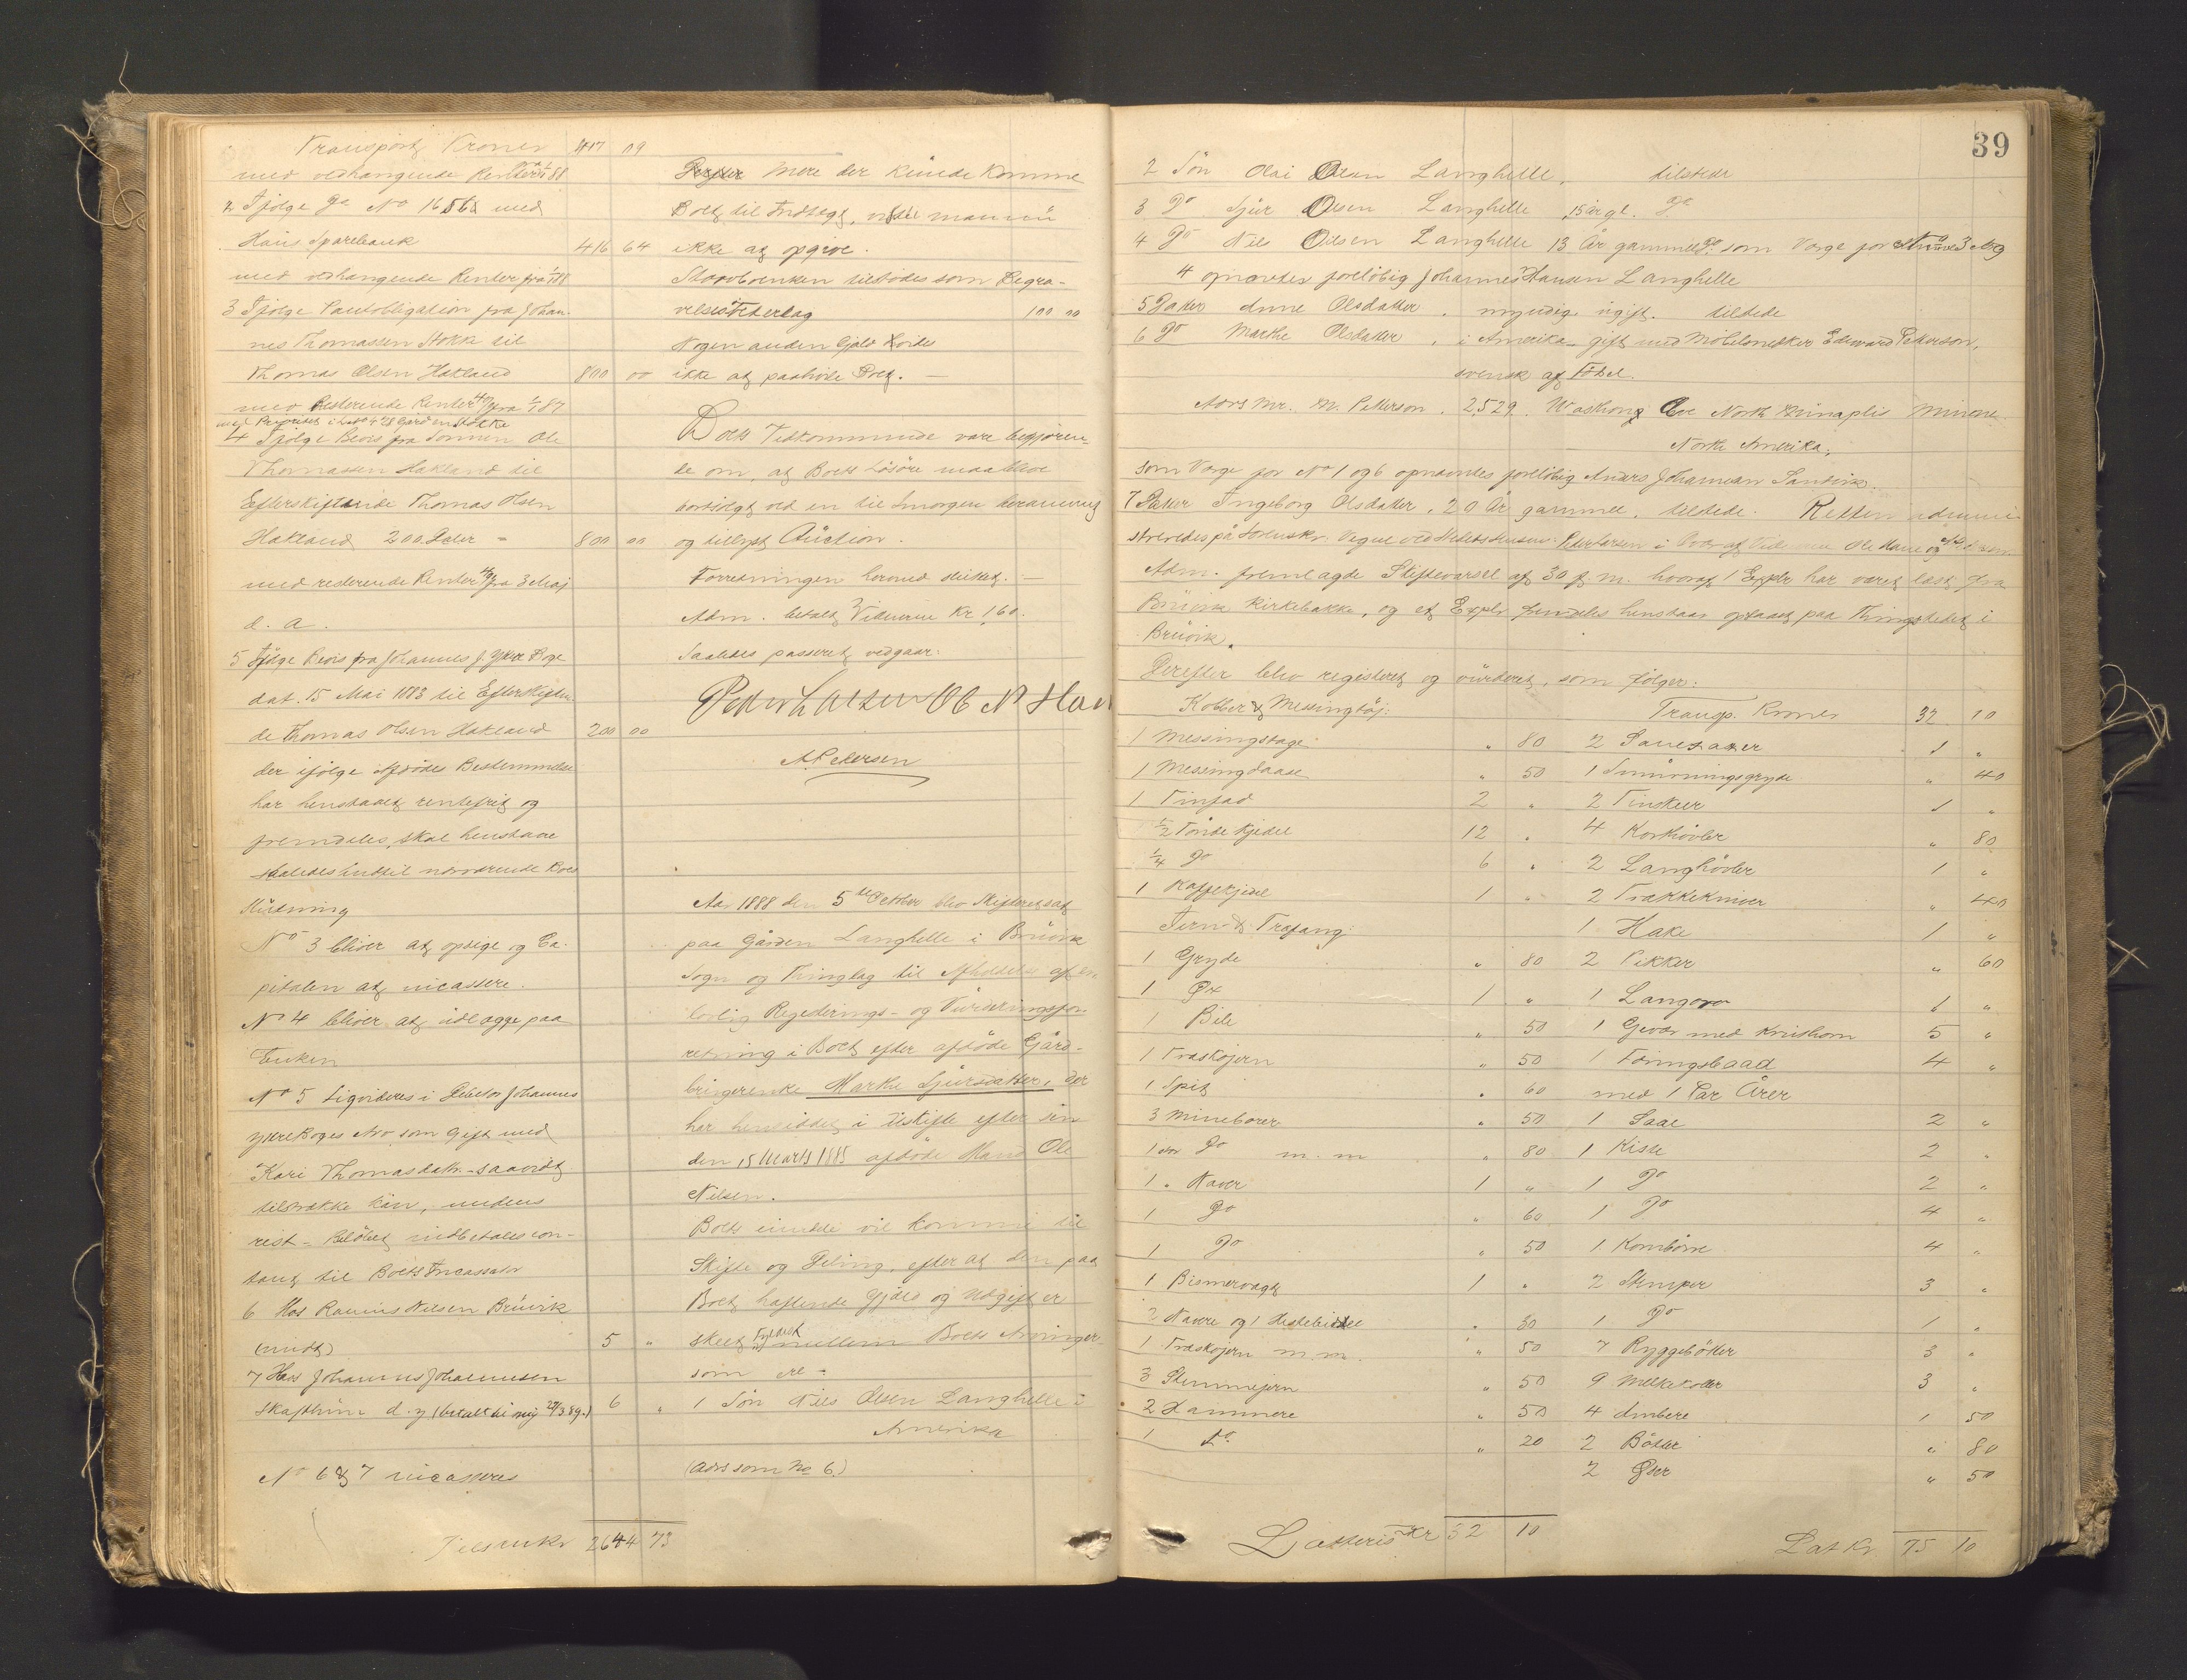 Transport Kroner 417 09
med vedhangende Renter fra 1/1 88
2 Ifølge Do No 1656 med
Haus Sparebank 416 64
med vedhangende Renter fra 1/1 88
3 Ifølge Pantobligation fra Johan-
nes Thomassen Stokke til
Thomas Olsen Hakland 800 00
med Resterende Renter 4% fra 1/1 87
med Prioritet i Gården Stokke
4 Ifølge Bevis fra Sønnen Ole
Thomassen Hakland til
Efterskiftende Thomas Olsen
Hakland 200 Daler = 800 00
med resterende Renter 4% fra 3 Maj
d. a.
5 Ifølge Bevis fra Johannes J. Yttre Boge
dat. 15 Mai 1883 til Efterskiften-
de Thomas Olsen Hakland 200 00
der ifølge Afdødes Bestemmelse
har henstaaet rentefrit og
fremdeles skal henstaae
saaledes indtil nærværende Boes
Slutning
No 3 bliver at opsige og Ca-
pitalen at incassere.
No 4 bliver at udlægge paa
Enken
No 5 Liqvideres i Debitor Johannes
Yttre Boges Arv som Gift med
Kari Thomasdatr. saavidt
tilstrække kan, medens
rest-Beløbet indbetales con-
tant til Boets Incassator
6 Hos Rasmus Nilsen Brüvik
(midt) 5 "
7 Hos Johannes Johannesen
Skaftün d. y (betalt til mig 27/3 89.) 6 "
No 6 & 7 incasseres
Tilsam Kr 2644 73
Derefter mere der künde komme
Boet til Indtægt, vidste man nü
ikke at opgive.
Stervboenken tilstodes som Begra-
velses Vederlag 100 00
Nogen anden Gjæld vordes
ikke at paahvile Boet. —
Boets Vedkommende vare begjæren-
de om, at Boets Løsøre maa blive
bortsolgt ved en til Imorgen berammet
og tillyst Aüction.
Forretningen hermed sluttet. —
Adm. betalt 2 Vidnerne Kr 1,60.
Saaledes passeret vedgaar:
Peder Larsen Ole N Hane
A Petersen
Aar 1888 den 5te October blev Skifteret sat
paa Gården Langhelle i Brüvik
Sogn og Thinglag til Afholdelse af en
lovlig Registrerings- og Vürderingsfor-
retning i Boet efter afdøde Gård-
brugerenke Marthe Sjürsdatter, der
har hensiddet i Uskifte efter sin
den 15 Marts 1885 afdøde Mand Ole
Nilsen.
Boets vil komme til
Skifte og Deling, efter at den paa
Boet haftende Gjæld og Udgift er
skeet Fyldest mellem Boets Arvinger
som ere:
1 Søn Nils Olsen Langhelle i
Amerika
(Adrs som No 6.)
39
2 Søn Olai Olsen Langhelle, tilstede
3 Do Sjür Olsen Langhelle 15 år gl. Do
4 Do Nils Olsen Langhelle 13 År gammel Do som Værge for No 3 og
4 opnævntes foreløbig Johannes Hansen Langhelle
5 Datter Anne Olsdatter, myndig ugift. tilstede
6 Do Marthe Olsdatter, i Amerika gift med Møbelsnekker Edeward Petterson,
svensk af Fødsel.
Adrs Mr. M. Petterson. 2529. Washong Ave North Minaplis Minne
North Amerika.
som Værge for No 1 og 6 opnævntes foreløbig Anders Johannesen Sandvik.
7 Datter Ingeborg Olsdatter, 20 År gammel. tilstede. Retten admini-
streredes på Sorenskr. Vegne ved Peder Larsen i Ole Hane og
Adm. fremlagde Skiftevarsel af 30 f. m. hvoraf 1 Explr har været læst fra
Brüvik Kirkebakke, og et Explr fremdeles henstaar opslaaet paa Thingstedet i
Brüvik.
Derefter blev registeret og vürderet, som følger:
Kobber & Messingtøj:
1 Messingstage " 80
1 Messingdaase " 50
1 Tinfad 2 "
1/2 Tønde Kjedel 12 "
1/4 Do 6 "
1 Kaffekjedel 1 "
Jern & Træfang:
1 Gryde " 80
1 Øx 1 "
1 Bile " 50
1 Træskojern " 50
1 Spit " 60
3 Mineborer " 50
1 Do m. m " 80
1 Naver 1 "
1 Do " 60
1 Do " 50
1 Bismervægt 1 "
2 Navere og 1 " 80
1 Træskojern m.m. " 50
3 Stemmejern " 50
2 Hammere " 50
1 Do " 20
Latteris Kr 32 10
Transp. Kroner 32 10
2 Sauesaxer 1 "
1 Smørningsgryde " 40
2 Tinskeer 1 "
4 Korthøvler " 80
2 Langhøvler 1 "
2 Trækkekniver " 40
1 Hake 1 "
2 Pikker " 60
1 Langorv 1 "
1 Gevær med Kruthorn 5 "
1 Føringsbaad 4 "
med 1 Par Årer
1 Saal 2 "
1 Kiste 2 "
1 Do 2 "
1 Do 4 "
1 Kornbørre 4 "
2 Stamper 3 "
1 Do 1 "
7 Ryggebøtter 3 "
9 Melkekoller 3 "
4 Ambere 1 50
2 Bøtter " 80
2 Øser " 50
Lat Kr 75 10